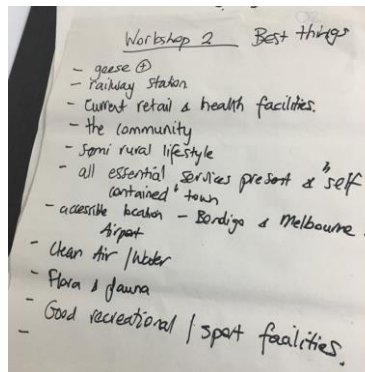 Workshop 2 Best things
- geese +
- railway station
- Current retail & health facilities.
- the community
- Semi rural lifestyle
- all essential services present & "self
contained" town
- accessible location - Bendigo & Melbourne
Airport
- Clean Air / Water
- Flora & fauna
- Good recreational / sport facilities.
-